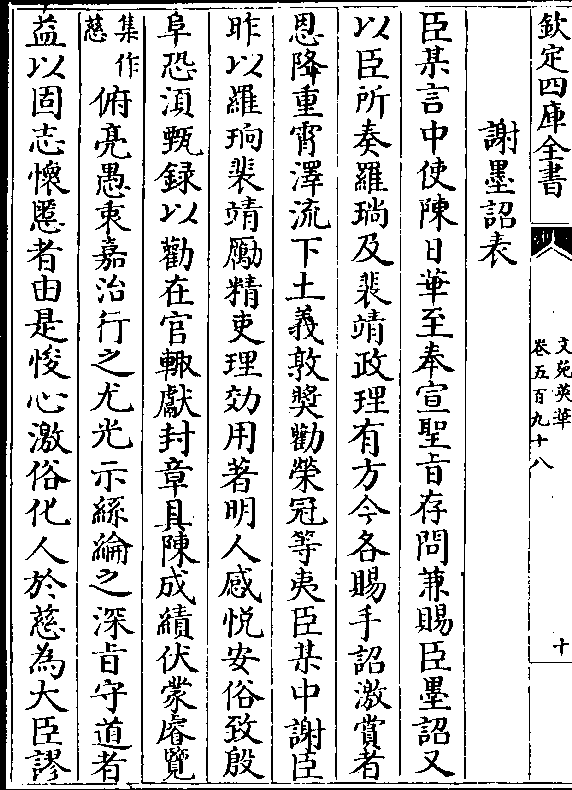 欽定四庫全書
文苑英華
卷五百九十八
十
謝墨詔表
臣某言中使陳日華至奉宣聖㫖存問兼賜臣墨詔又
以臣所奏羅珦及裴靖政理有方今各賜手詔激賞者
恩降重霄澤流下土義敦奬勸榮冠等夷臣某中謝臣
昨以羅珦裴靖勵精吏理効用著明人感悦安俗致殷
阜恐湏甄録以勸在官輙獻封章具陳成績伏蒙睿覽
集作
慈
俯亮愚衷嘉治行之尤光示絲綸之深㫖守道者
益以固志懐慝者由是悛心激俗化人於慈為大臣謬